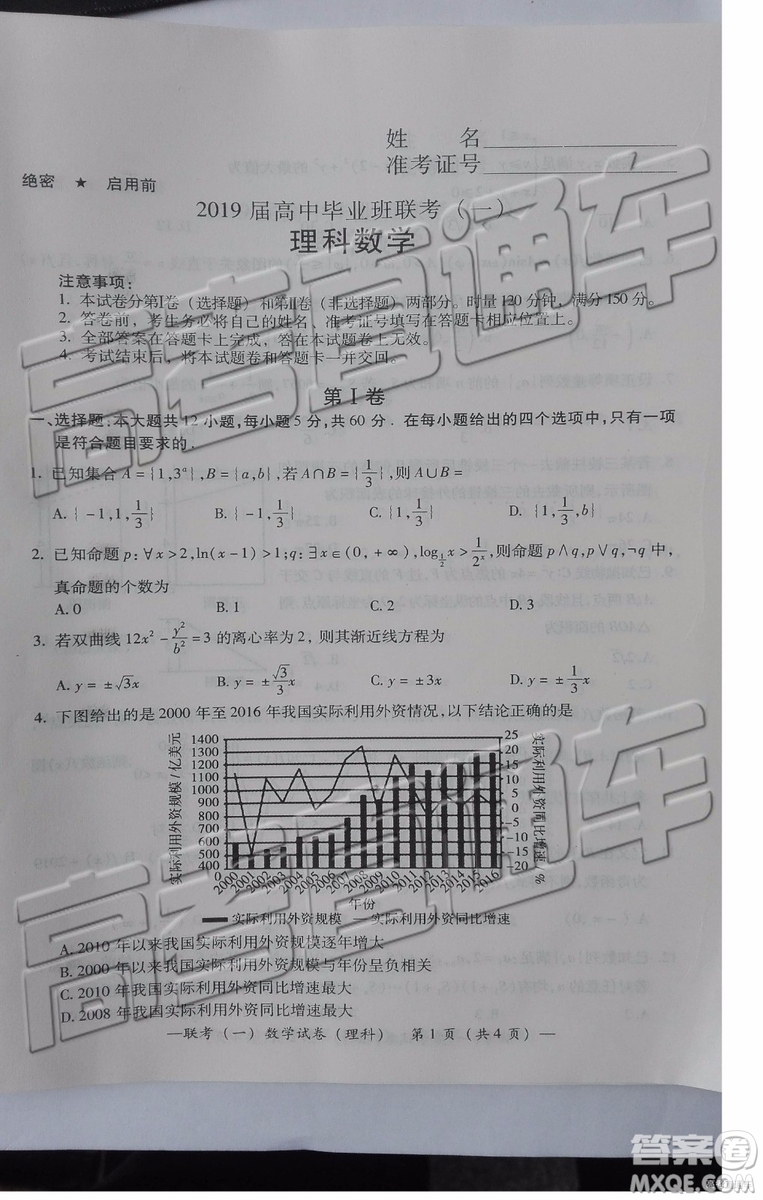 姓 名
准考证号
绝密 ★ 启用前
2019 届高中毕业班联考（一）
理科数学
注意事项：
1. 本试卷分第Ⅰ卷（选择题）和第Ⅱ卷（非选择题）两部分。时量 120 分钟，满分 150 分。
2. 答卷前，考生务必将自己的姓名、准考证号填写在答题卡相应位置上。
3. 全部答案在答题卡上完成，答在本试题卷上无效。
4. 考试结束后，将本试题卷和答题卡一并交回。
第Ⅰ卷
一、选择题：本大题共 12 小题，每小题 5 分，共 60 分．在每小题给出的四个选项中，只有一项
是符合题目要求的．
1. 已知集合 A = {1,3^a}, B = {a,b}, 若 A∩B = {1/3}, 则 A∪B =
A. {-1,1,1/3} B. {-1,1/3} C. {1,1/3} D. {1,1/3,b}
2. 已知命题 p: ∀x>2, ln(x-1)>1; q: ∃x∈(0,+∞), log_{1/2}x > 1/2^x, 则命题 p∧q, p∨q, ¬q 中，
真命题的个数为
A. 0 B. 1 C. 2 D. 3
3. 若双曲线 12x² - y²/b² = 3 的离心率为 2，则其渐近线方程为
A. y = ±√3x B. y = ±√3/3 x C. y = ±3x D. y = ±1/3 x
4. 下图给出的是 2000 年至 2016 年我国实际利用外资情况，以下结论正确的是
实际利用外资规模/亿美元
1400
1300
1200
1100
1000
900
800
700
600
500
400
25
20
15
10
5
0
-5
-10
-15
-20
实际利用外资同比增速/%
2000 2001 2002 2003 2004 2005 2006 2007 2008 2009 2010 2011 2012 2013 2014 2015 2016
年份
实际利用外资规模 实际利用外资同比增速
A. 2010 年以来我国实际利用外资规模逐年增大
B. 2000 年以来我国实际利用外资规模与年份呈负相关
C. 2010 年我国实际利用外资同比增速最大
D. 2008 年我国实际利用外资同比增速最大
—联考（一）数学试卷（理科） 第 1 页（共 4 页）—
高考直通车
答案圈
MXQE.COM